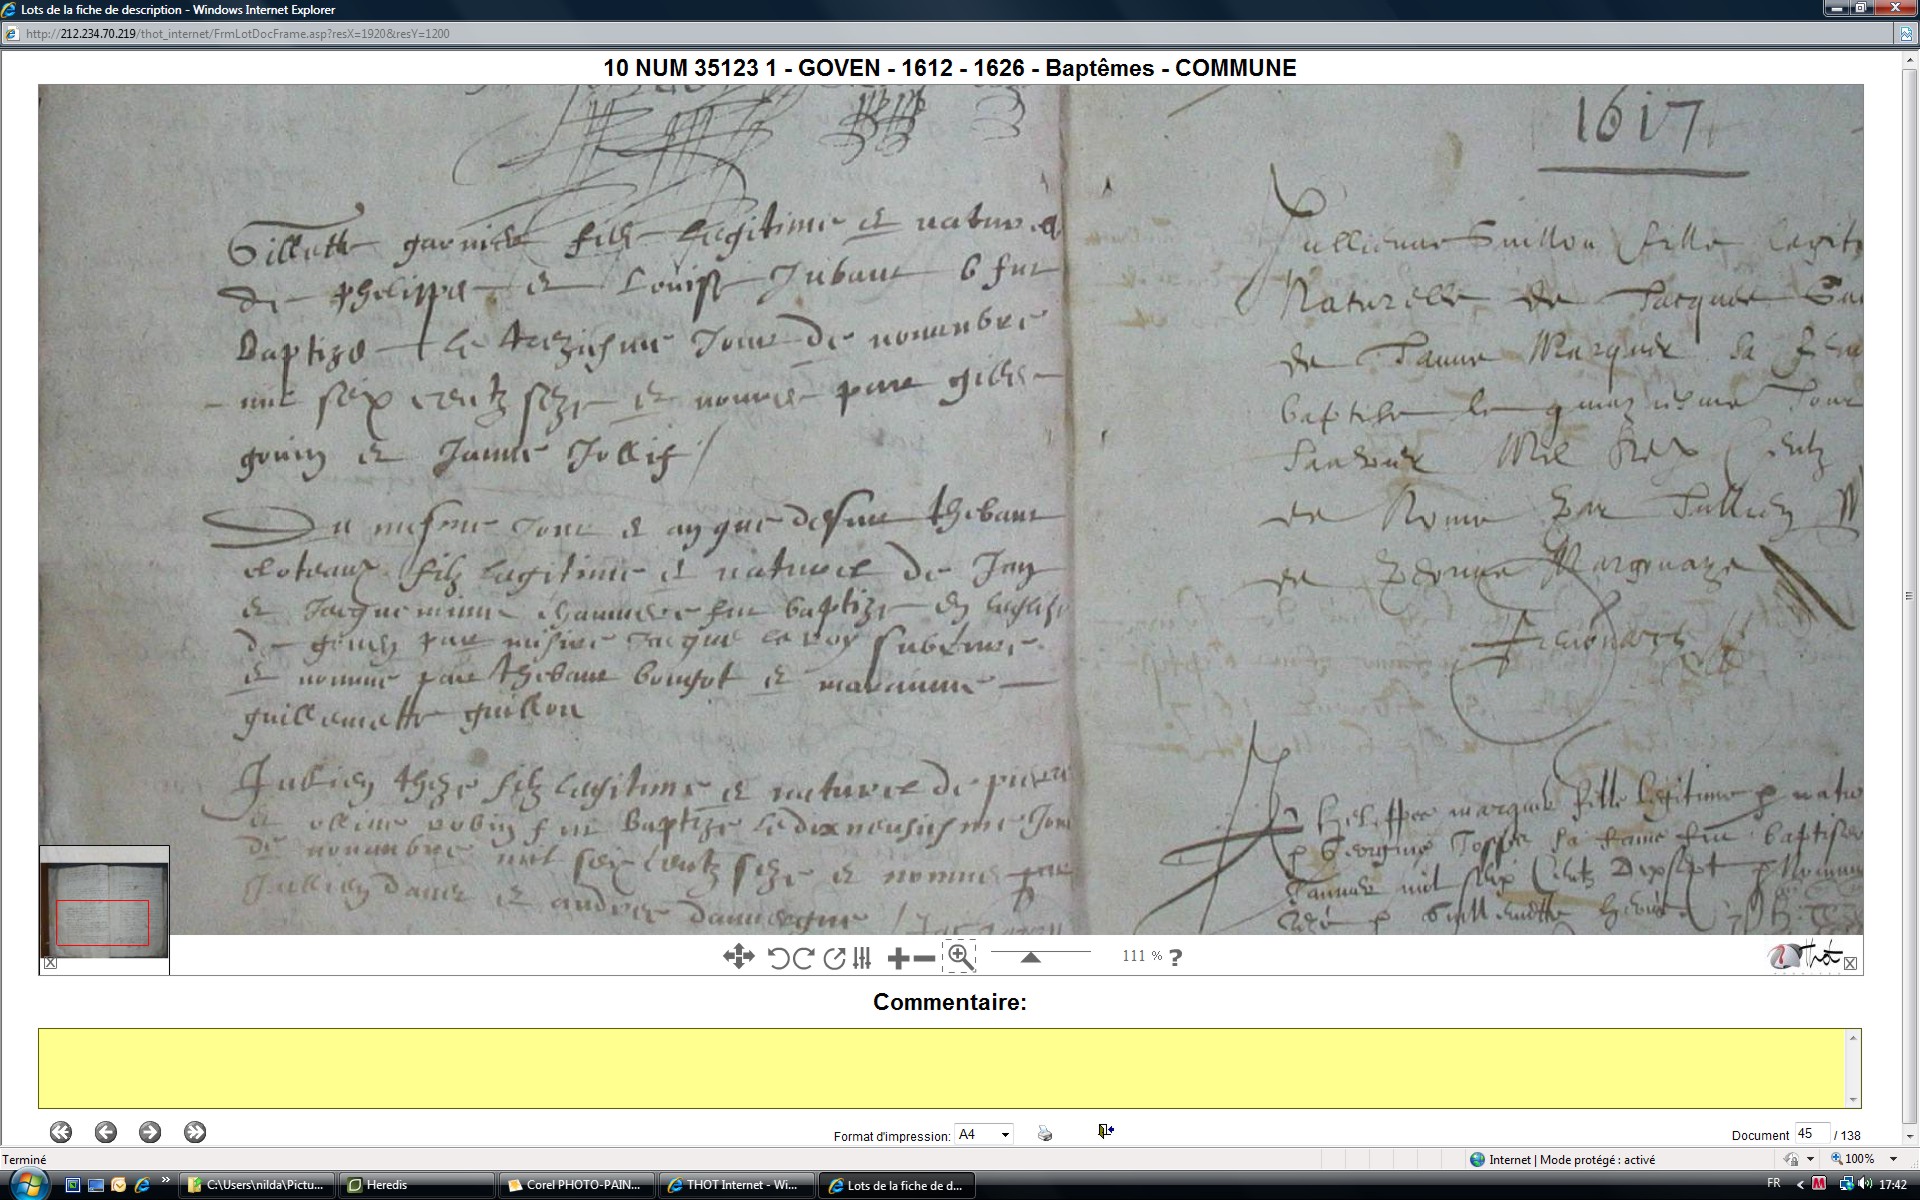 Lots de la fiche de description - Windows Internet Explorer
http://212.234.70.219/thot_internet/FrmLotDocFrame.asp?resX=1920&resY=1200
10 NUM 35123 1 - GOVEN - 1612 - 1626 - Baptêmes - COMMUNE
Gillette garnier fille legitime et naturel
de phelippe et Louise Jubaut fut
Baptize le treziesme Jour de novembre
mil seix centz seze et nommee par gilles
gouin et Janne Jollif
Du mesme Jour et an que dessus thebaut
filz legitime et naturel de Jan
et Jacquemine fut baptize en leglise
de goven par misire Jacque le roy subcure
et nomme par thebaut bougot et maraine
guillemette guillou
Jullien theze filz legitime et naturel de pierre
et olline robin fut Baptize le dixneufiesme Jour
de novembre mil seix centz seze et nomme par
Jullien danet et andree
1617
Jullienne Guillou fille legit
Naturelle de Jacques Gu
de Janne Marquer sa fem
baptisee le quinziesme Jour
Janvier Mil Seix Centz
de Nome Par Jullien
de Perrine
Phelippee marquer fille legitime p natu
p Georgine Josse sa fame fut baptisee
Janvier mil seix Centz Dixsept p Nommee
p Guillemette
111 %
?
Thot
Commentaire:
Format d'impression: A4
Document 45 / 138
Terminé
Internet | Mode protégé : activé
100%
C:\Users\nilda\Pictu...
Heredis
Corel PHOTO-PAIN...
THOT Internet - Wi...
Lots de la fiche de d...
FR
17:42